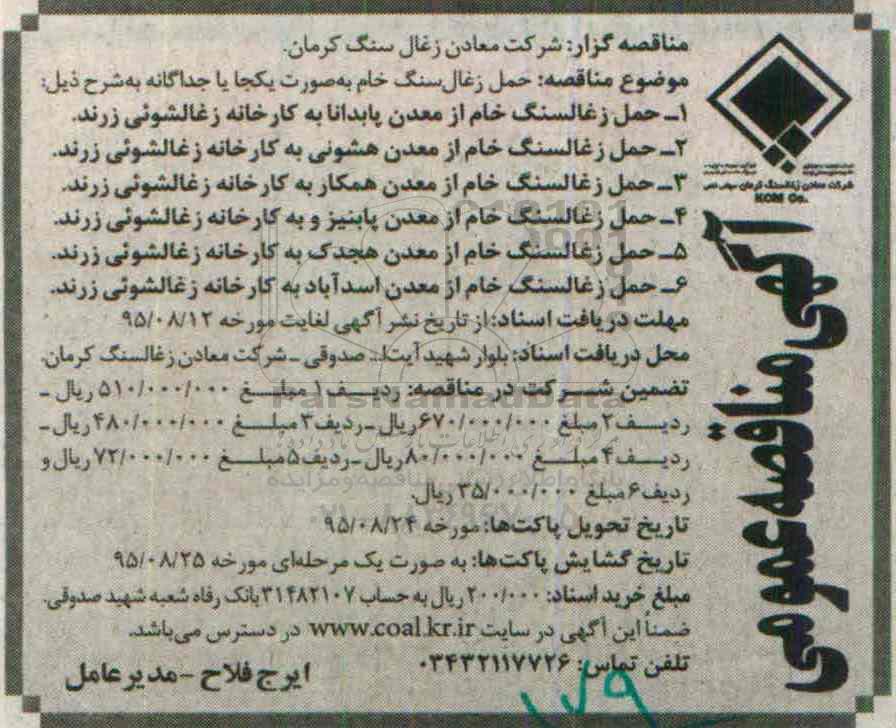 مناقصه گزار: شرکت معادن زغال سنگ کرمان.
موضوع مناقصه: حمل زغال‌سنگ خام به‌صورت یکجا یا جداگانه به‌شرح ذیل:
۱ـ حمل زغالسنگ خام از معدن پابدانا به کارخانه زغالشوئی زرند.
۲ـ حمل زغالسنگ خام از معدن هشونی به کارخانه زغالشوئی زرند.
۳ـ حمل زغالسنگ خام از معدن همکار به کارخانه زغالشوئی زرند.
۴ـ حمل زغالسنگ خام از معدن پابنیز و به کارخانه زغالشوئی زرند.
۵ـ حمل زغالسنگ خام از معدن هجدک به کارخانه زغالشوئی زرند.
۶ـ حمل زغالسنگ خام از معدن اسدآباد به کارخانه زغالشوئی زرند.
مهلت دریافت اسناد: از تاریخ نشر آگهی لغایت مورخه ۹۵/۰۸/۱۲
محل دریافت اسناد: بلوار شهید آیت‌ا... صدوقی ـ شرکت معادن زغالسنگ کرمان.
تضمین شرکت در مناقصه: ردیف ۱ مبلغ ۵۱۰/۰۰۰/۰۰۰ ریال ـ
ردیف ۲ مبلغ ۶۷۰/۰۰۰/۰۰۰ ریال ـ ردیف ۳ مبلغ ۴۸۰/۰۰۰/۰۰۰ ریال ـ
ردیف ۴ مبلغ ۸۰/۰۰۰/۰۰۰ ریال ـ ردیف ۵ مبلغ ۷۲/۰۰۰/۰۰۰ ریال و
ردیف ۶ مبلغ ۳۵/۰۰۰/۰۰۰ ریال.
تاریخ تحویل پاکت‌ها: مورخه ۹۵/۰۸/۲۴
تاریخ گشایش پاکت‌ها: به صورت یک مرحله‌ای مورخه ۹۵/۰۸/۲۵
مبلغ خرید اسناد: ۲۰۰/۰۰۰ ریال به حساب ۳۱۴۸۲۱۰۷ بانک رفاه شعبه شهید صدوقی.
ضمناً این آگهی در سایت www.coal.kr.ir در دسترس می‌باشد.
تلفن تماس: ۰۳۴۳۲۱۱۷۷۲۶
ایرج فلاح - مدیرعامل
شرکت معادن زغالسنگ کرمان سهامی خاص
KCM Co.
آگهی مناقصه عمومی
ParsNamadData
۱۷۹